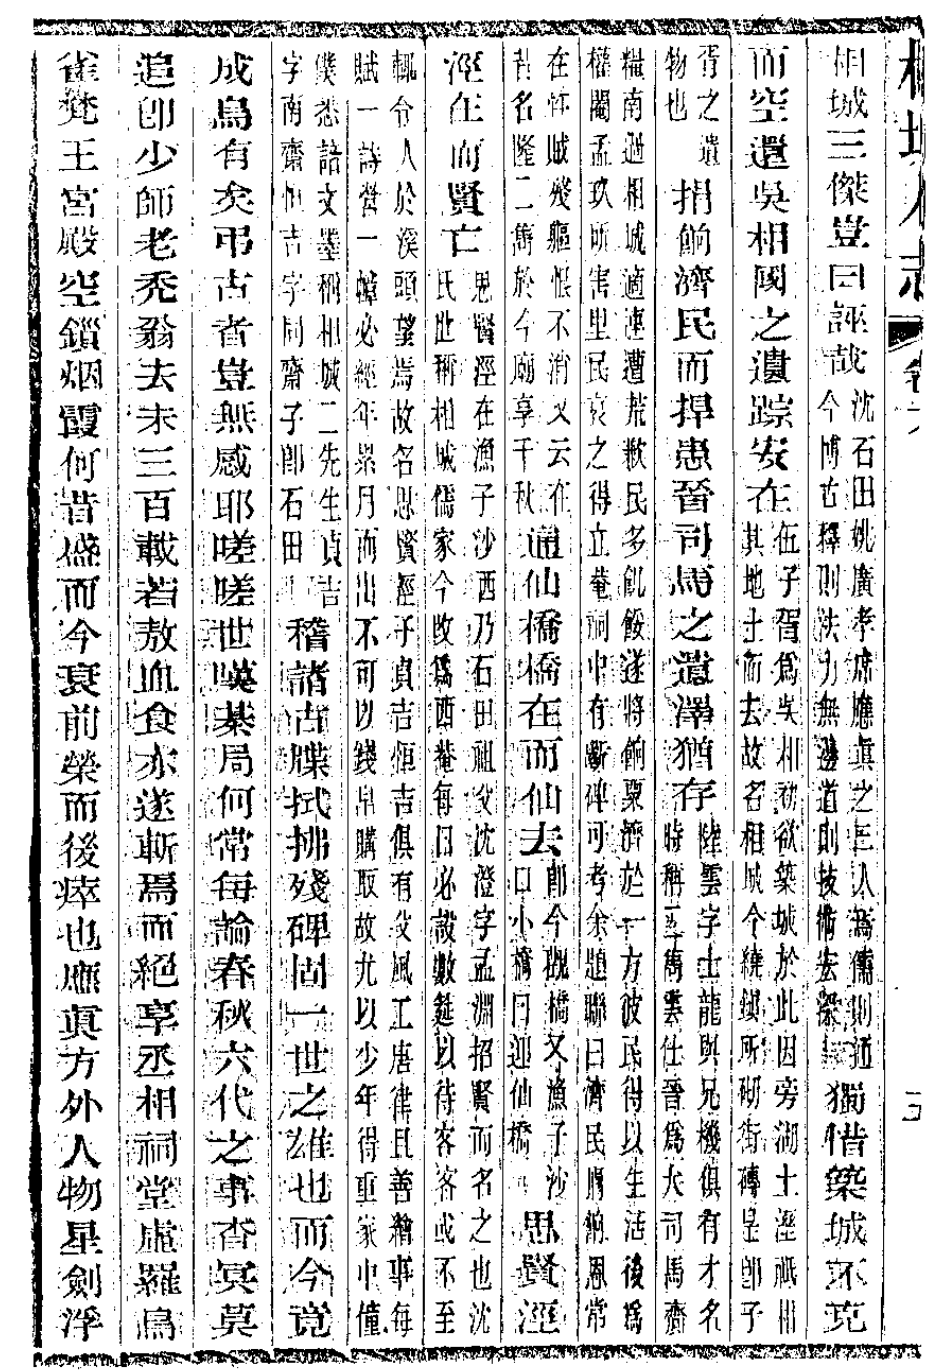 相城三傑豈曰誣哉沈石田姚廣孝席應眞之三人焉儒則通今博古釋則法力無邊道則技術宏深獨惜築城不克
而空還吳相國之遺踪安在伍子胥爲吳相初欲築城於此因旁湖土溼祇相其地土而去故名相城今繞鎮所砌街磚是卽子
胥之遺物也捐餉濟民而捍患晉司馬之遺澤猶存陸雲字士龍與兄機俱有才名時稱二雋雲仕晉爲大司馬齎
糧南過相城適連遭荒歉民多飢餒遂將餉粟濟於一方彼民得以生活後爲權閹孟玖所害里民哀之得立菴祠中有斷碑可考余題聯曰濟民膺餉恩常
在忤賊殘軀恨不消又云在晉名隆二雋於今廟享千秋通仙橋橋在而仙去卽今觀橋又漁子沙口小橋曰迎仙橋思賢涇
涇在而賢亡思賢涇在漁子沙西乃石田祖父沈澄字孟淵招賢而名之也沈氏世稱相城儒家今改爲西菴每日必設數筵以待客客或不至
輒令人於溪頭望焉故名思賢涇子貞吉恒吉俱有父風工唐律且善繪事每賦一詩營一幛必經年累月而出不可以錢帛購取故尤以少年得重家中僮
僕悉諳文墨稱相城二先生貞吉字南齋恒吉字同齋子卽石田稽諸古牒拭拂殘碑固一世之雄也而今竟
成烏有矣弔古者豈無感耶嗟嗟世嘆棊局何常每論春秋六代之事杳冥莫
追卽少師老禿翁去未三百載若敖血食亦遂斬焉而絕享丞相祠堂虛羅鳥
雀梵王宮殿空鎖烟霞何昔盛而今衰前榮而後瘁也應眞方外人物星劍浮